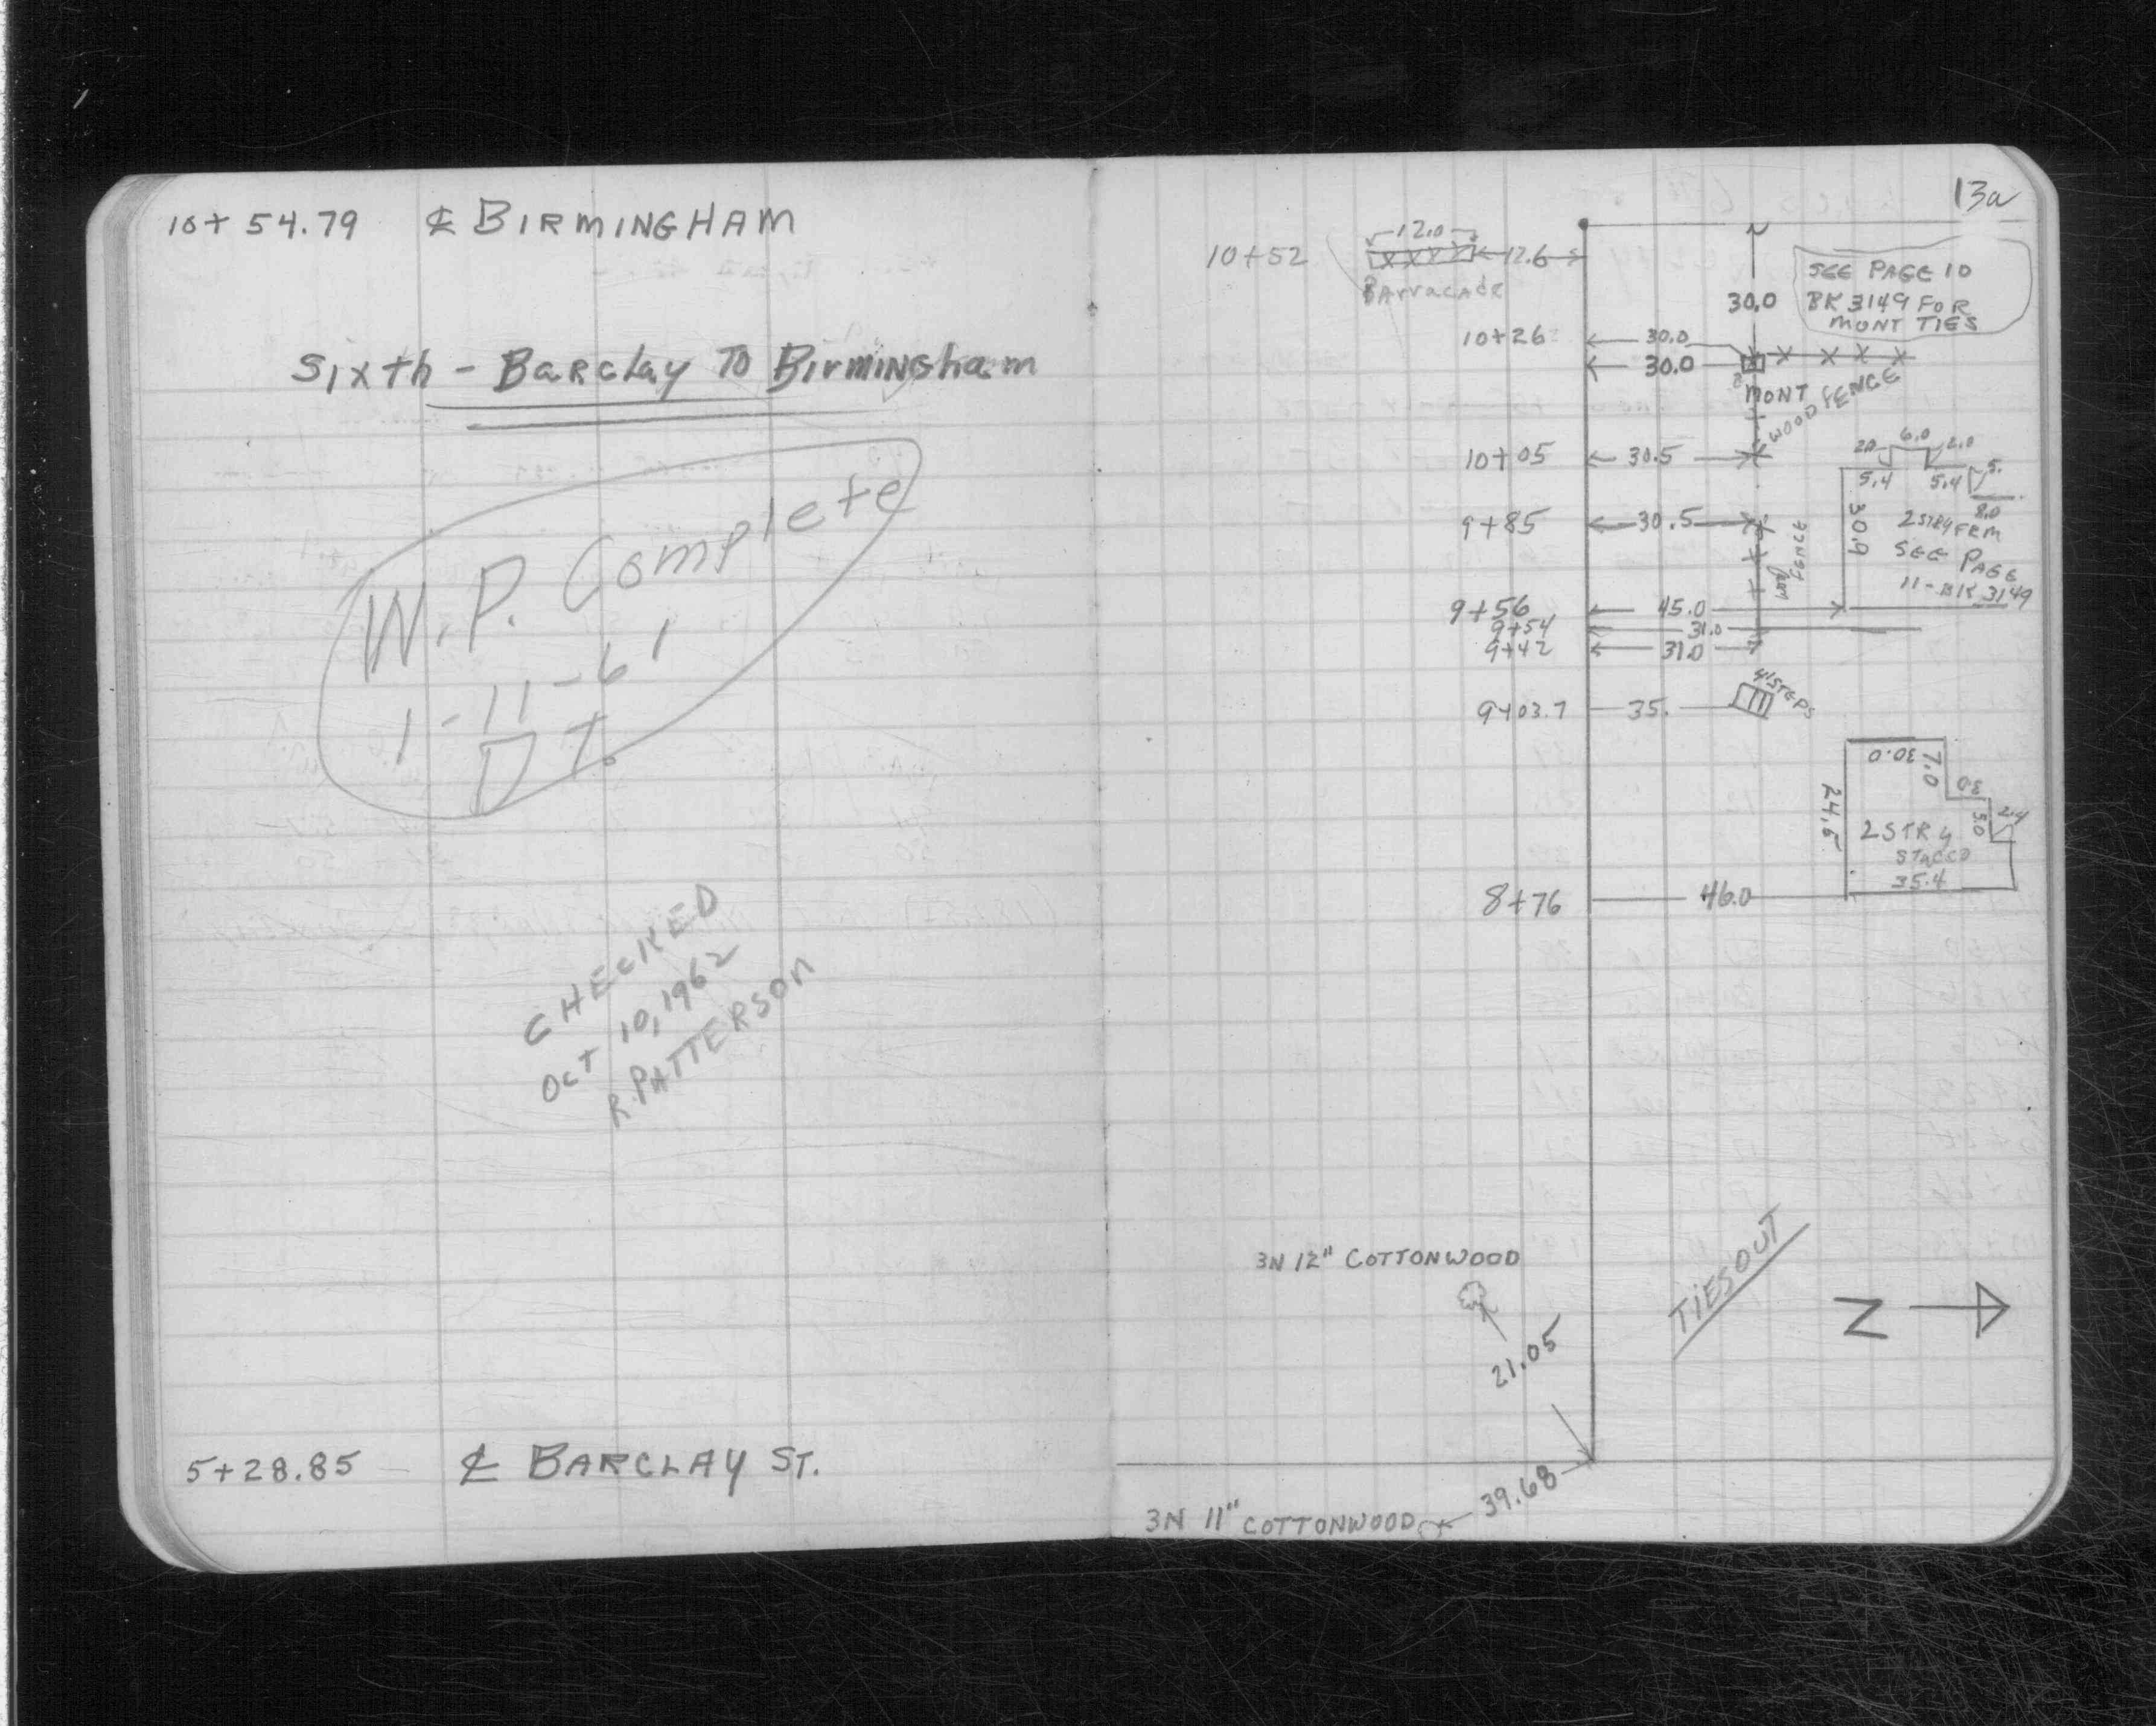 10+54.79 ℄ BIRMINGHAM
Sixth - Barclay To Birmingham
W.P. Complete
1-11-61
D T.
CHECKED
OCT 10, 1962
R. PATTERSON
5+28.85 ℄ BARCLAY ST.
13a
12.0
10+52 12.6
Barracade
30.0
SEE PAGE 10
BK 3149 FOR
MONT TIES
10+26 30.0
30.0
MONT
WOOD FENCE
10+05 30.5
2.0 6.0 2.0
5.4 5.4 5.
8.0
30.9
2 STRY FRM
SEE PAGE
11-BK 3149
9+85 30.5
FENCE
9+56 45.0
9+54 31.0
9+42 31.0
9+03.7 35.
4' STEPS
30.0 7.0
3.0
24.5 5.0 2.4
2 STRY
STACCO
35.4
8+76 46.0
3N 12" COTTONWOOD
21.05
TIES OUT
N
39.68
3N 11" COTTONWOOD